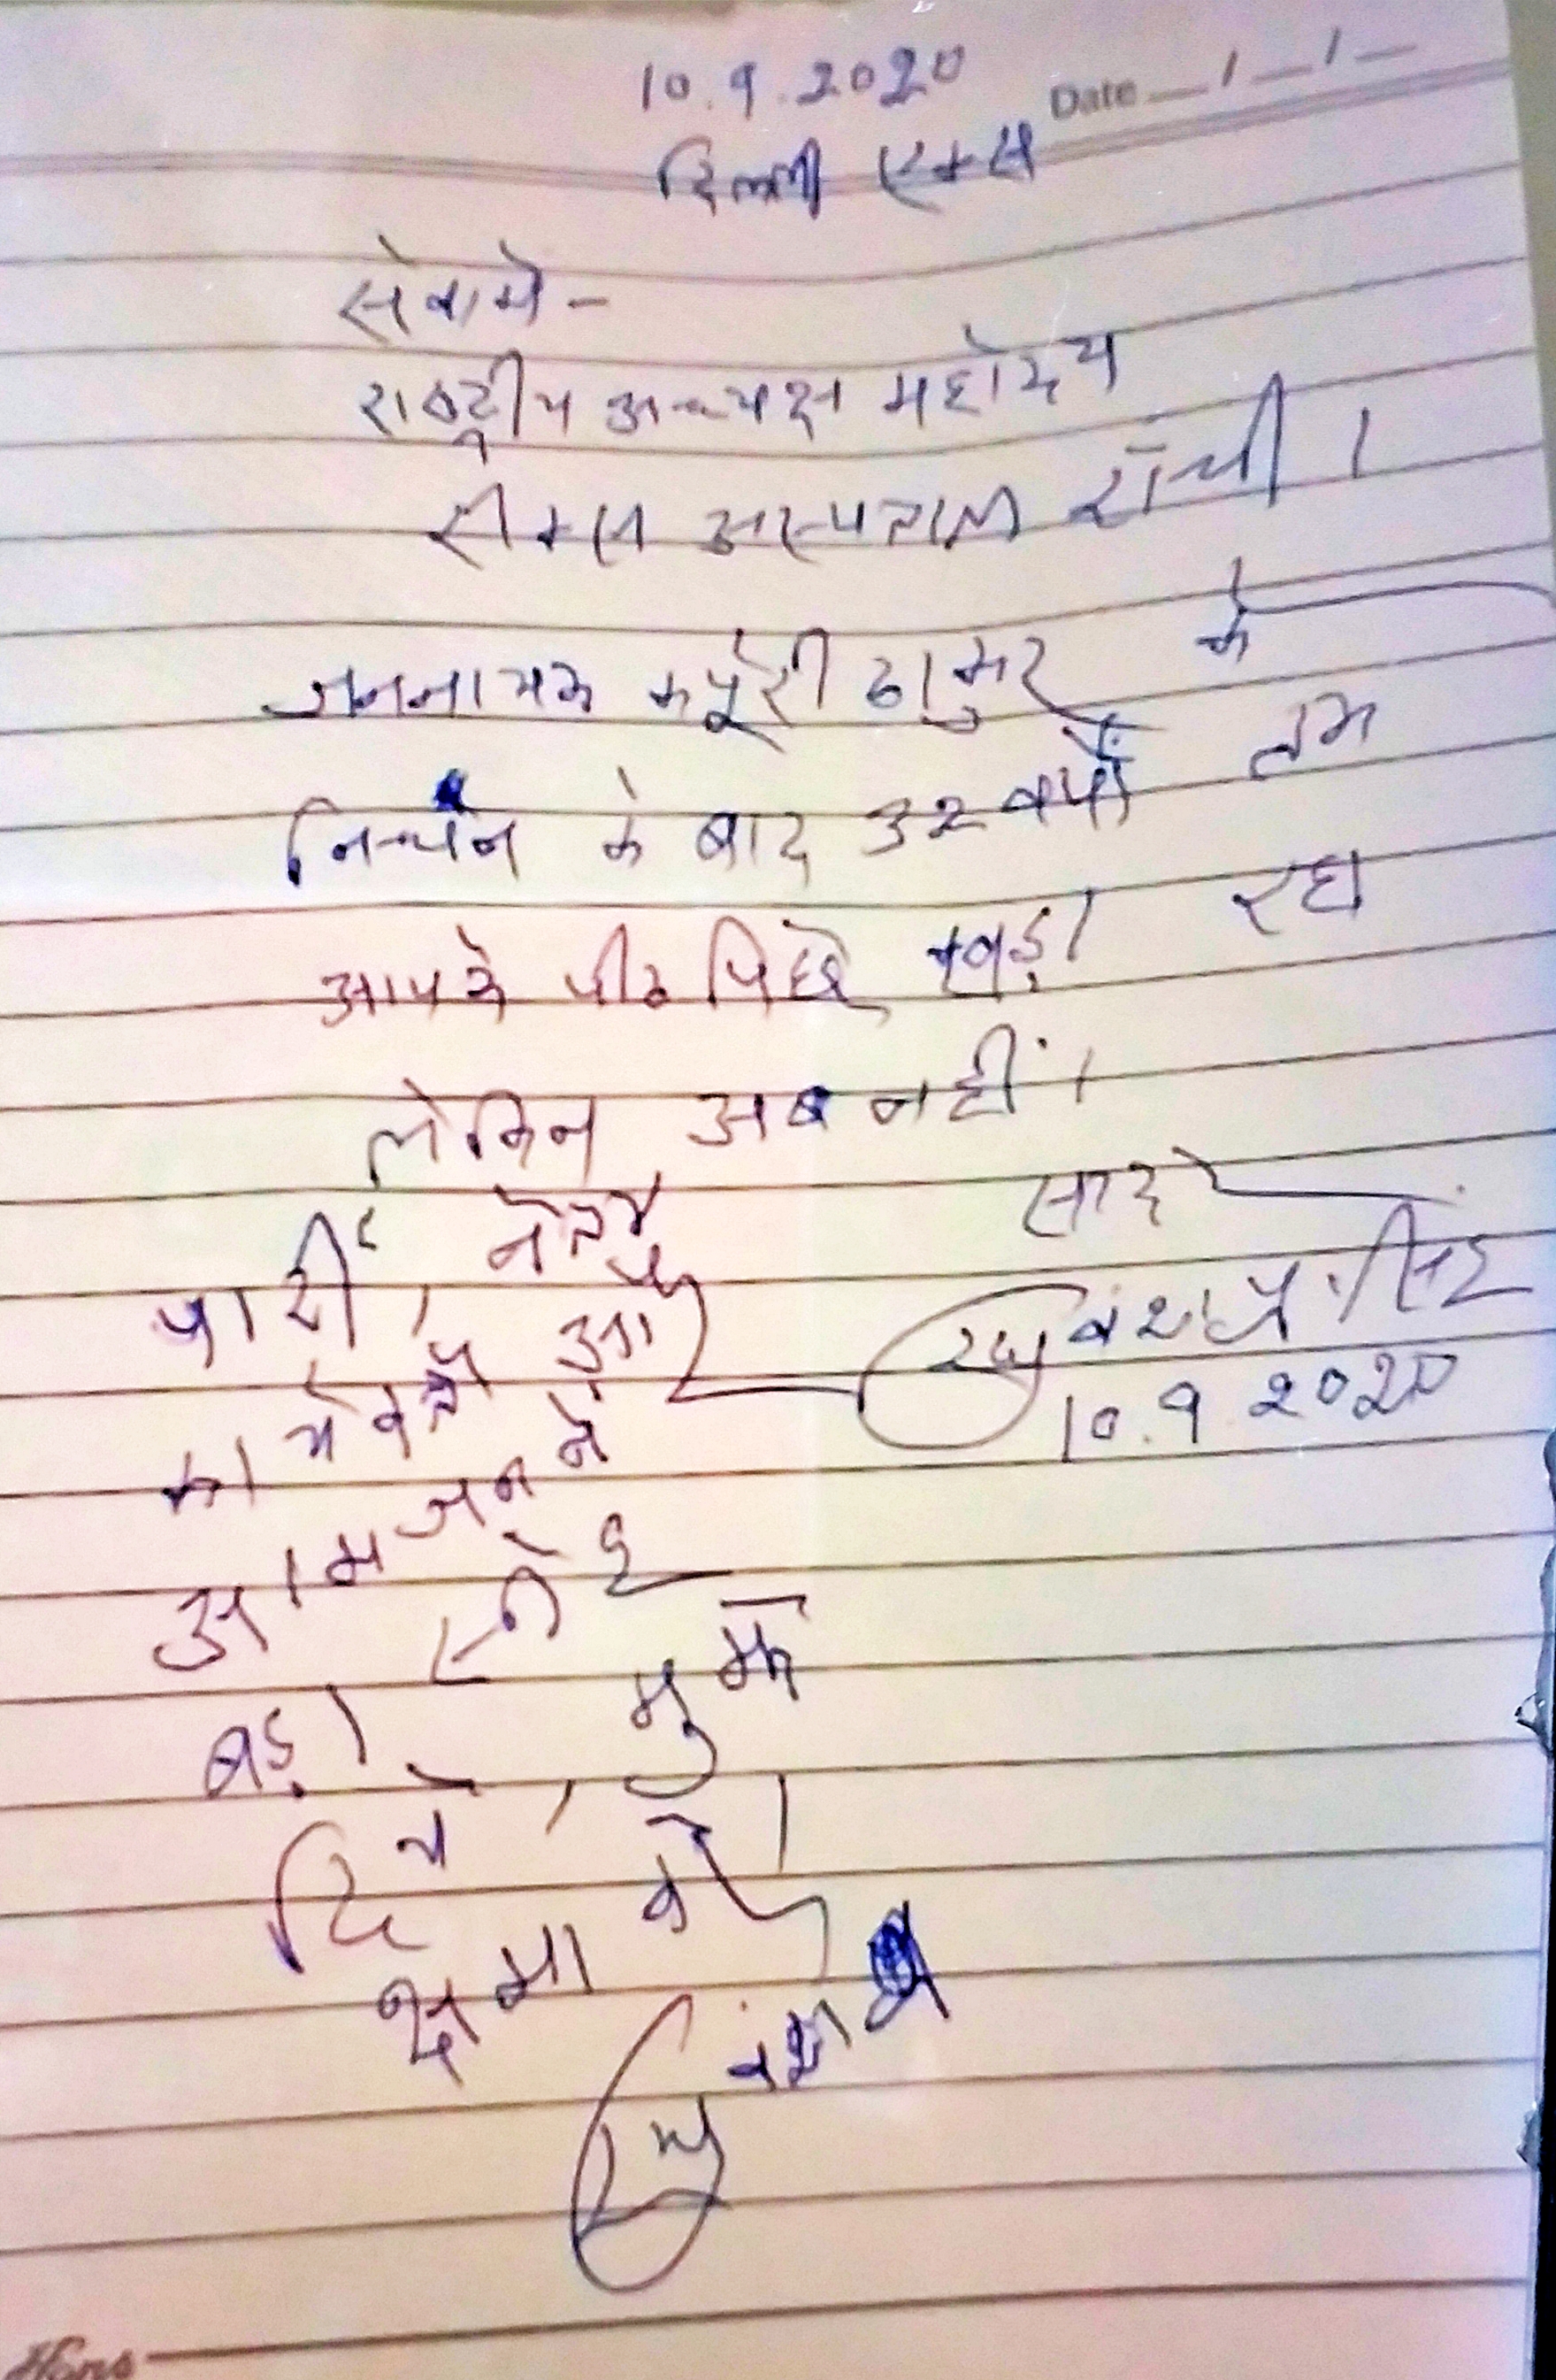 10.9.2020
Date __/__/__
दिल्ली एम्स
सेवामे-
राष्ट्रीय अध्यक्ष महोदय
रीम्स अस्पताल राँची।
जननायक कर्पूरी ठाकुर के
निधन के बाद 32 वर्षों तक
आपके पीठ पिछे खड़ा रहा
लेकिन अब नहीं।
पार्टी, नेता
कार्यकर्ता और
आमजन ने
बड़ा स्नेह
दिये, मुझे
क्षमा करें।
सादर
रघुवंश प्र. सिंह
10.9.2020